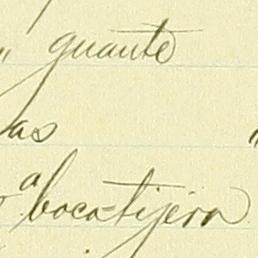 " guante
as "
a boca-tijera